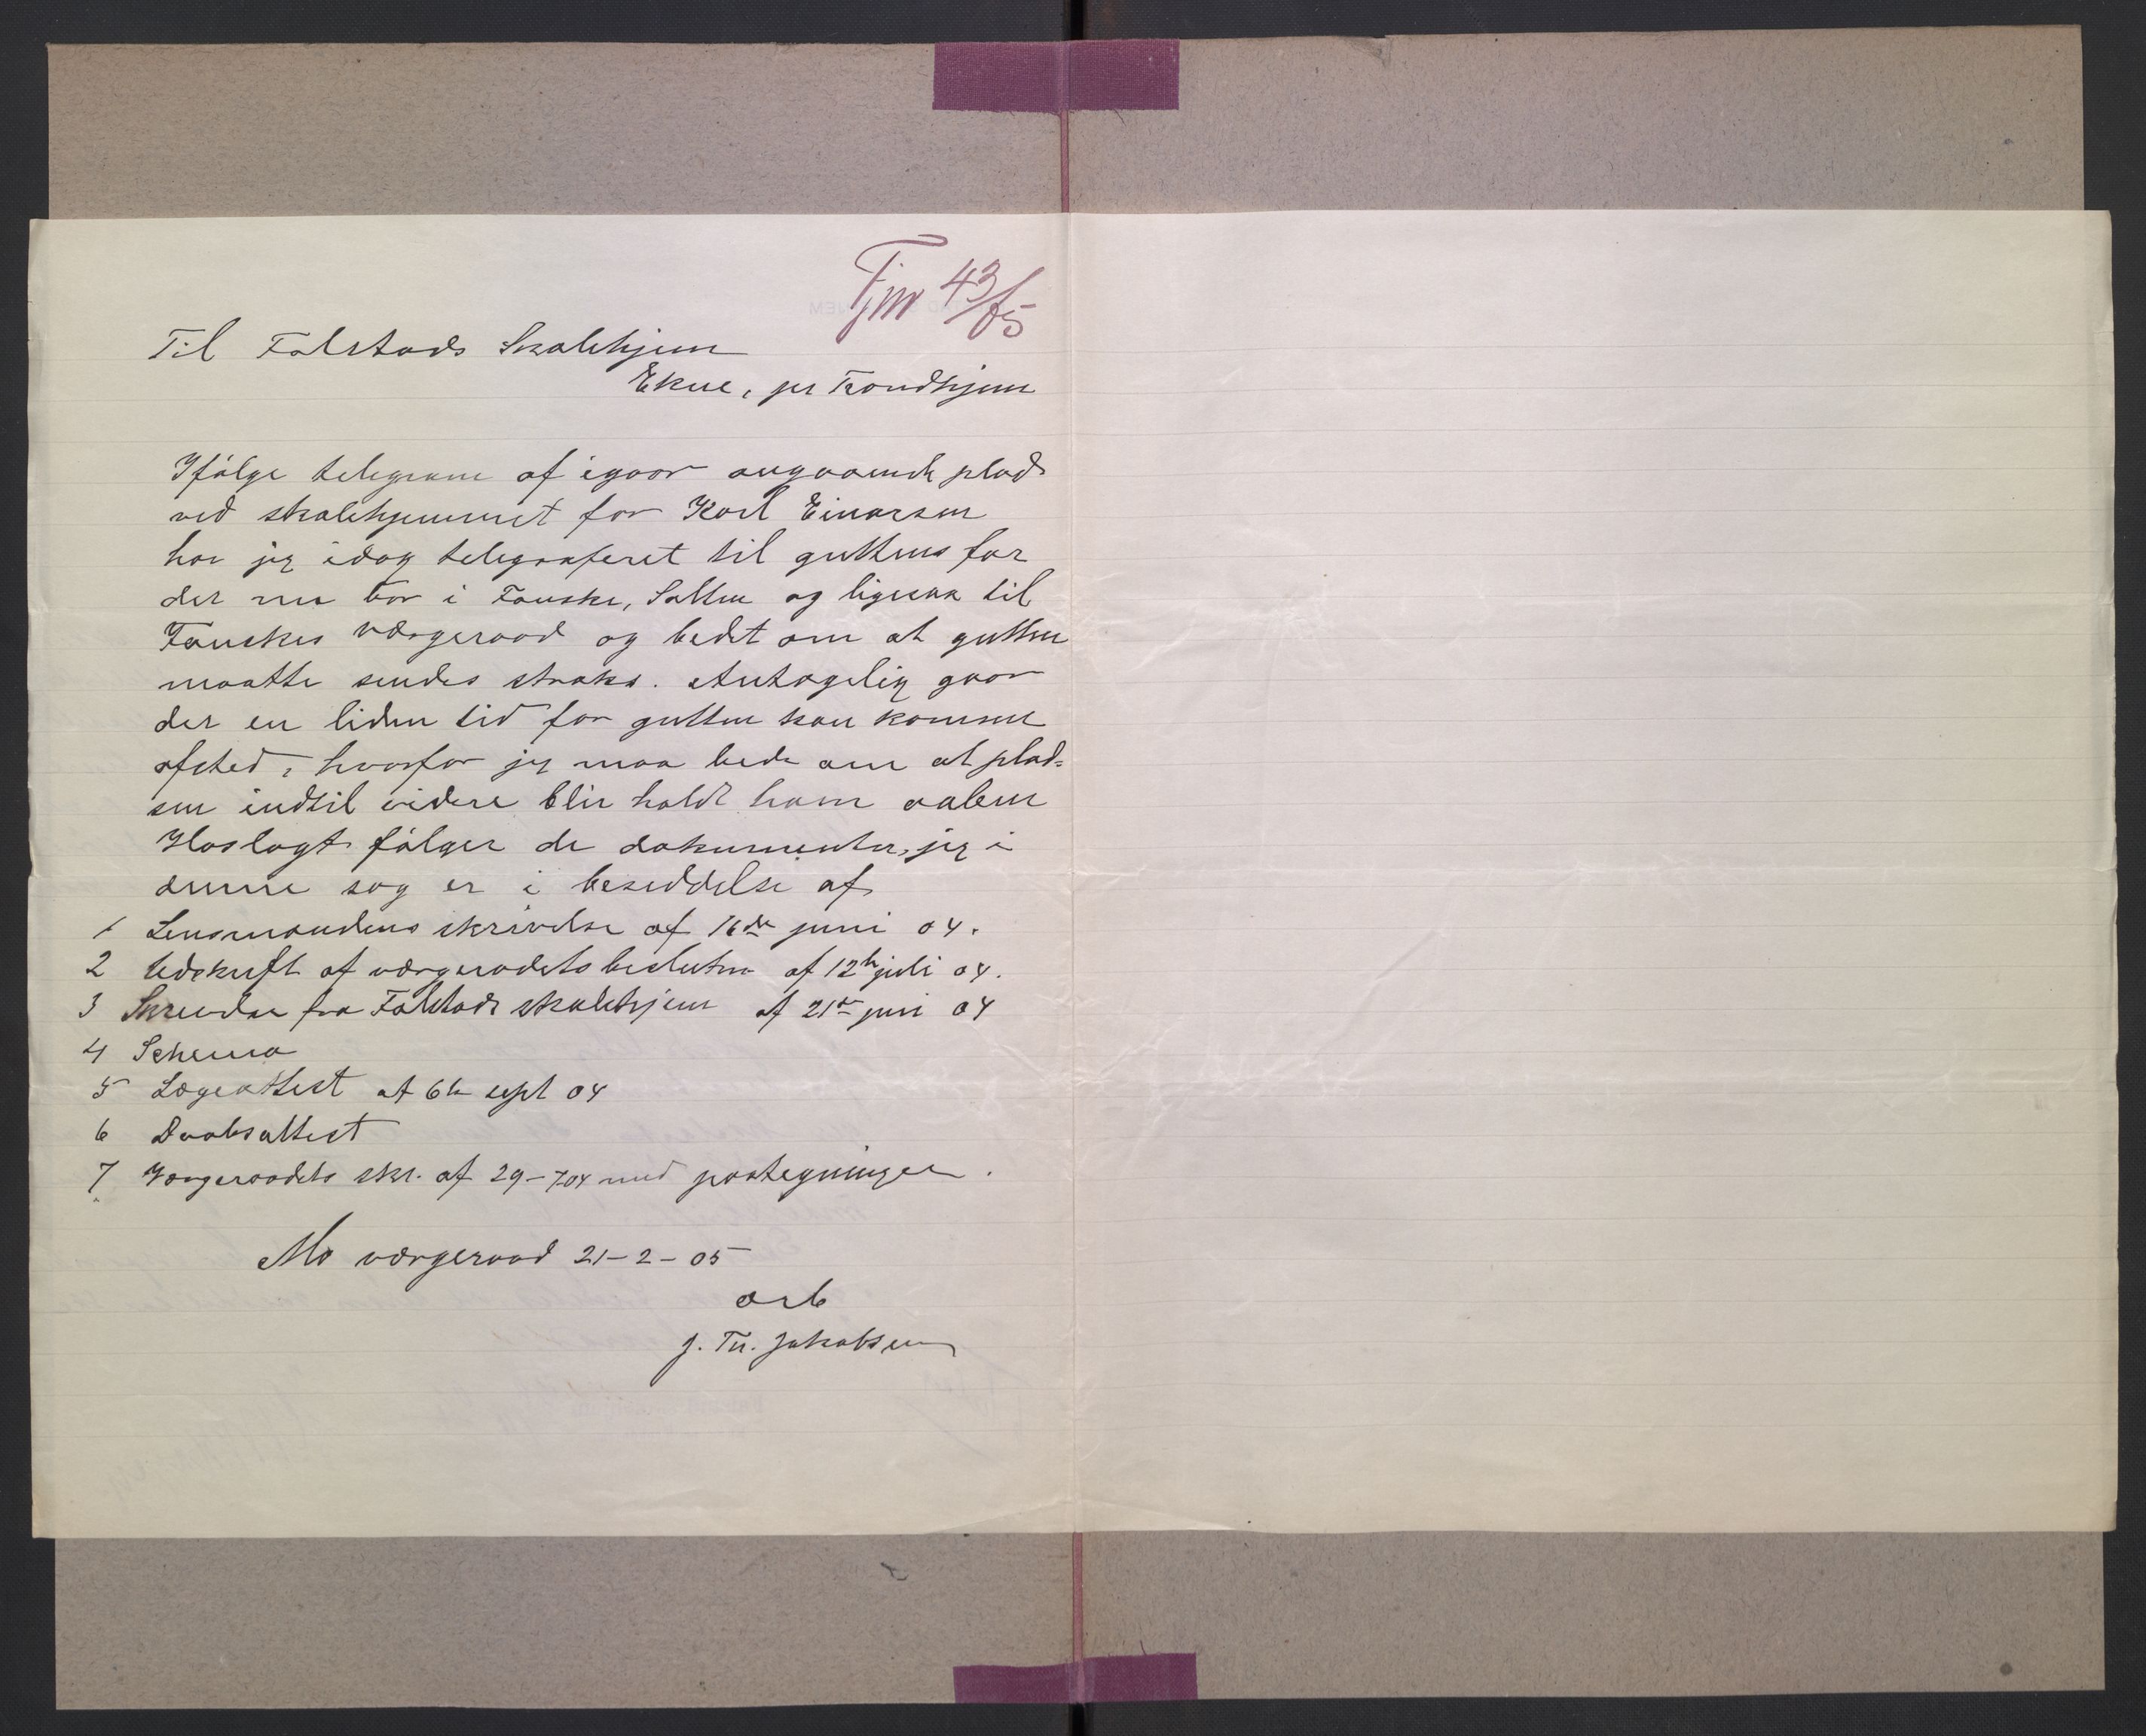 Fjm 43/05
Til Falstads Skolehjem
Ekne, pr Trondhjem
Ifølge telegram af igaar angaaende plads
ved skolehjemmet for Karl Einarsen
har jeg idag telegraferet til guttens far
der nu bor i Fauske, Salten og ligesaa til
Fauskes værgeraad og bedt om at gutten
maatte sendes straks. Antagelig gaar
der en liden tid før gutten kan komme
afsted, hvorfor jeg maa bede om at plad-
sen indtil videre blir holdt ham aaben
Hoslagt følger de dokumenter, jeg i
denne sag er i besiddelse af
1 Lensmandens skrivelse af 16de juni 04.
2 Udskrift af værgeradets beslutn af 12te juli 04.
3 Skrivelse fra Falstads skolehjem af 21de juni 04
4 Schema
5 Lægeattest af 6te sept 04
6 Daabsattest
7 Værgeraadets skr. af 29-7-04 med paategninger.
Mo værgeraad 21-2-05
ærb
J. Th. Jakobsen